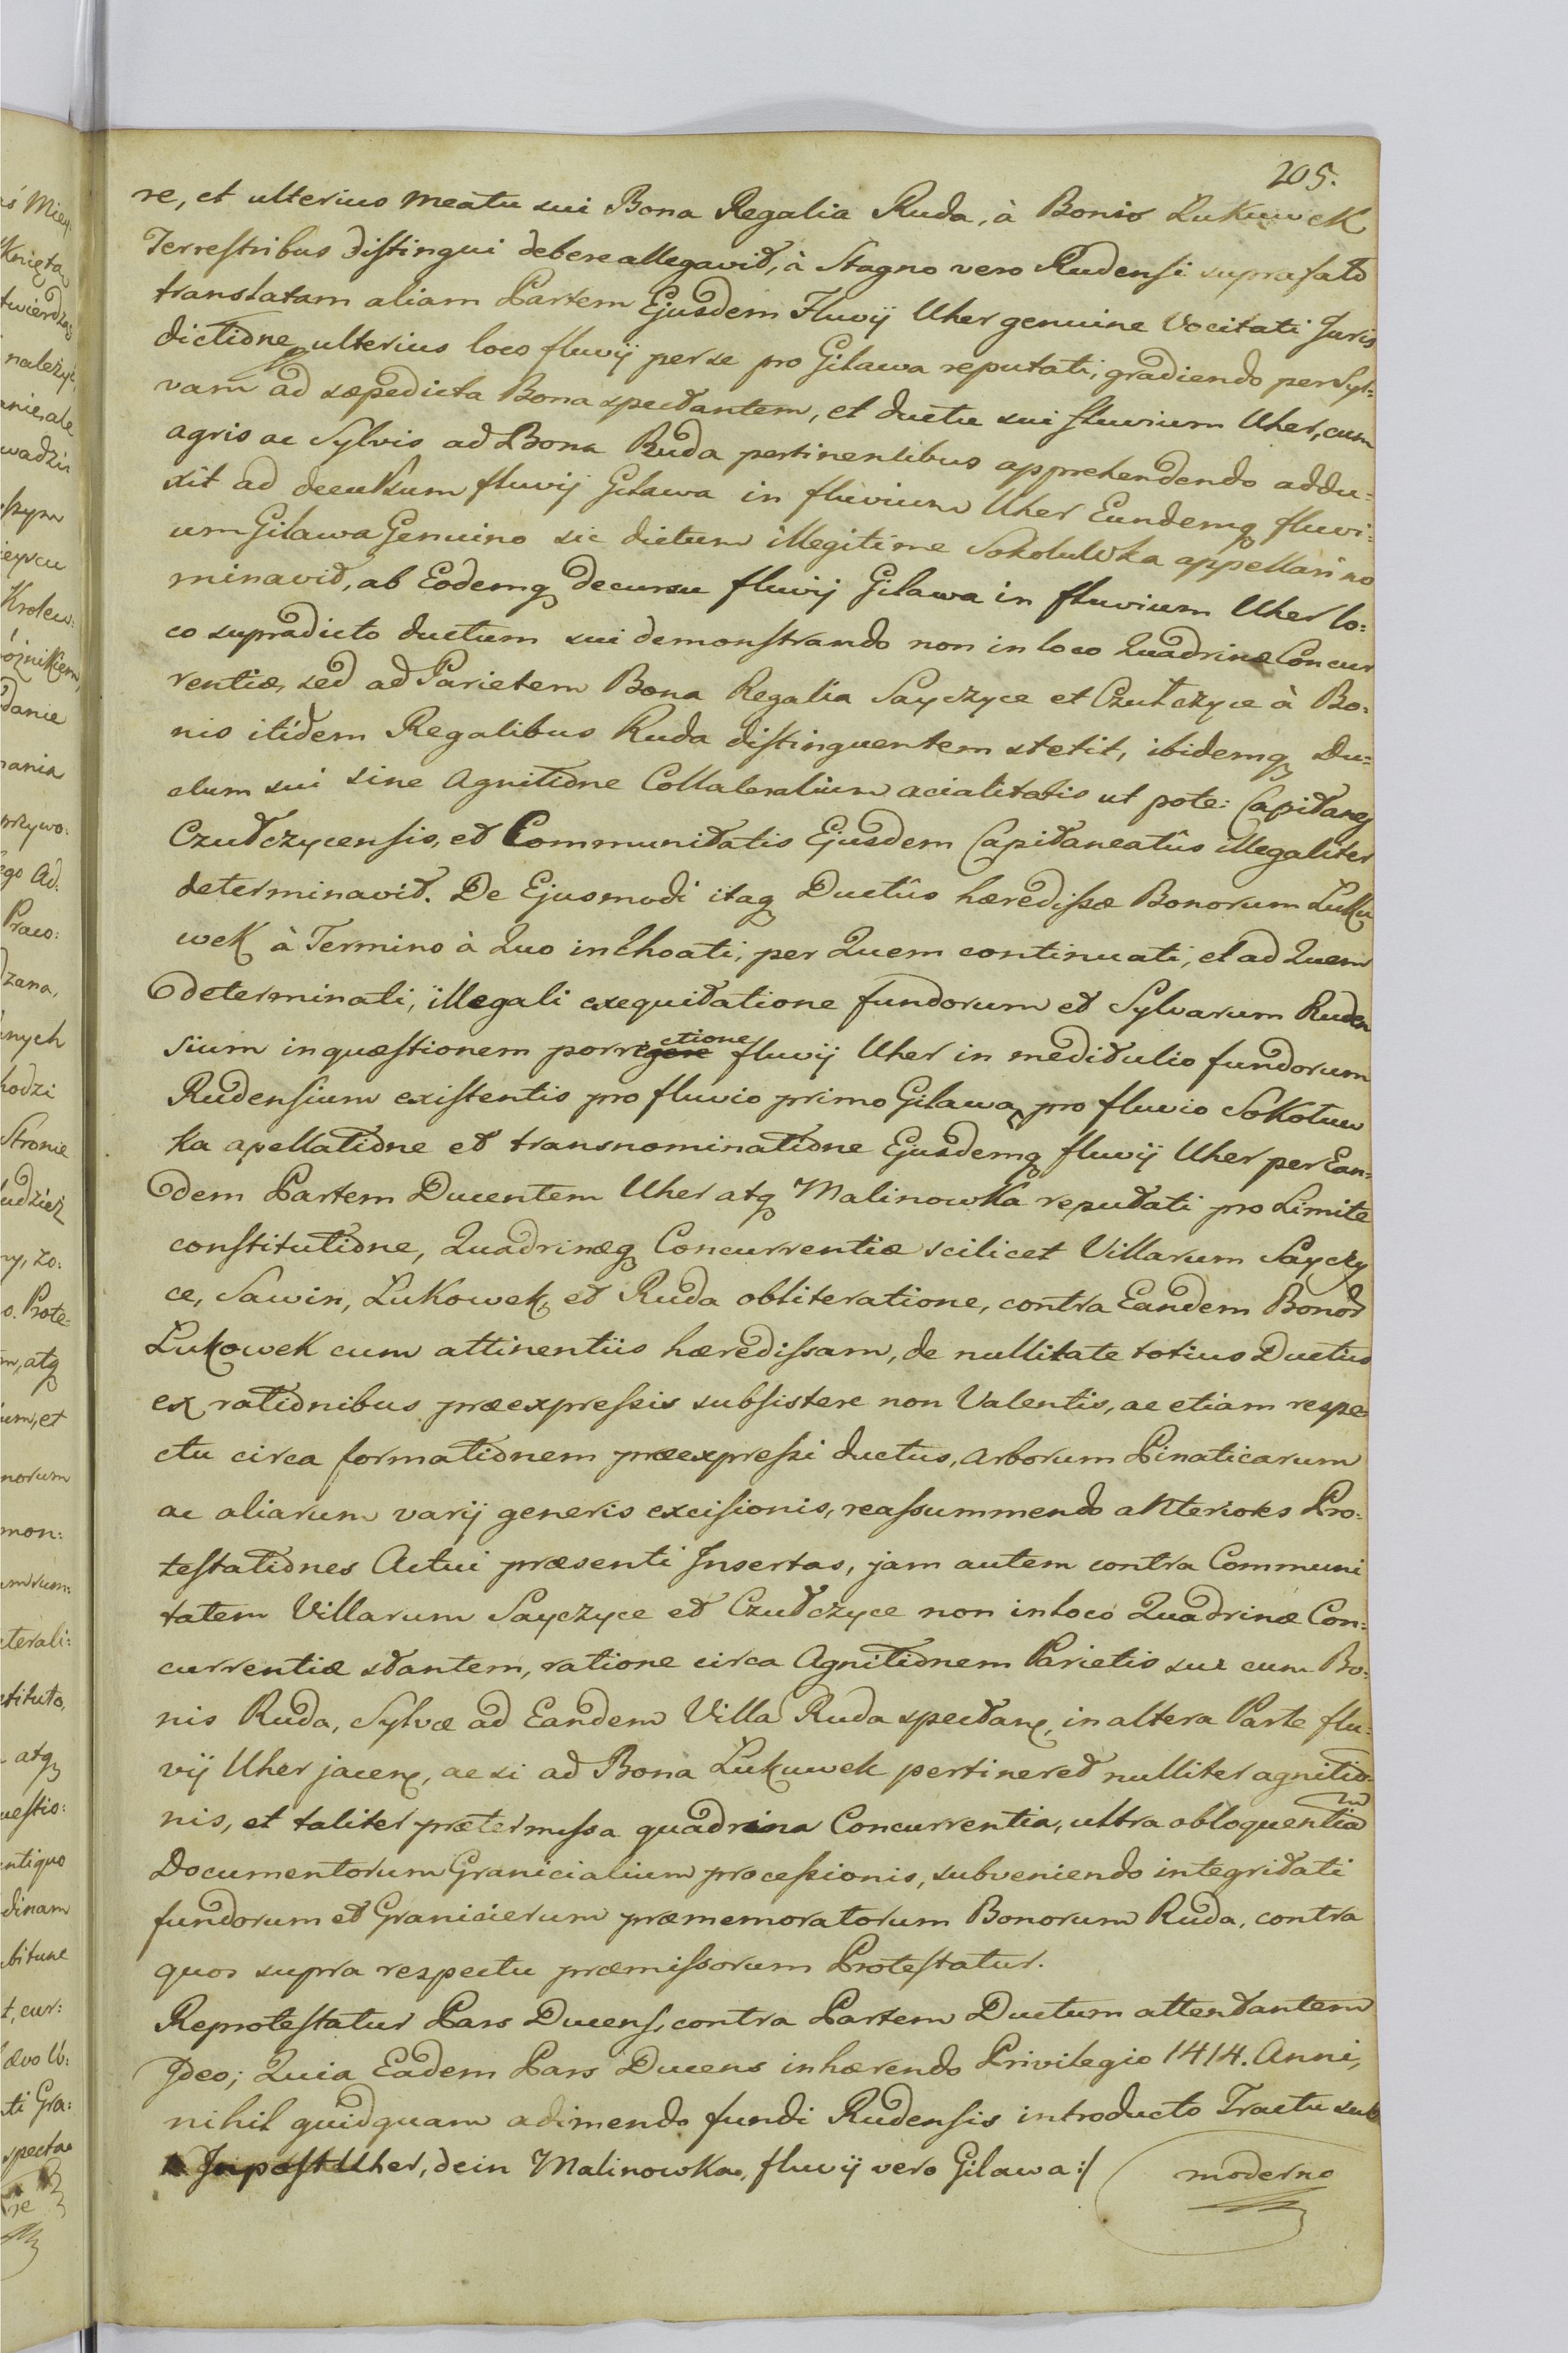 205.
re, et ulterius meatu sui Bona Regalia Ruda, à Bonis Lukuwek
Terrestribus distingui debere allegavit, à Stagno vero Rudensi suprafato
translatam aliam Partem Ejusdem Fluvij Uher genuine Vocitati Juris
dictione ulterius loco fluvij per se pro Gilawa reputati, gradiendo per Syl:
vam ad sæpedicta Bona spectantem, et ductu sui fluvium Uher, cum
agris ac Sylvis ad Bona Ruda pertinentibus apprehendendo addu:
xit ad decursum fluvij Gilawa in fluvium Uher Eundemq fluvi:
um Gilawa Genuino sic dictum illegitime Sokoluwka appellari no
minavit, ab Eodemq decursu fluvij Gilawa in fluvium Uher lo:
co supradicto ductum sui demonstrando non in loco Quadrinæ Concur
rentiæ, sed ad Parietem Bona Regalia Sayczyce et Czułczyce à Bo:
nis itidem Regalibus Ruda distinguentem stetit, ibidemq Du:
ctum sui sine Agnitione Collateralium acialitatis ut pote: Capitanej
Czułczycensis, et Communitatis Ejusdem Capitaneatûs illegaliter
determinavit. De Ejusmodi itaq Ductûs hæredissæ Bonorum Luku
wek à Termino à Quo inchoati, per Quem continuati, et ad Quem
determinati, illegali exequitatione fundorum et Sylvarum Ruden
sium in quæstionem porre gere ctione fluvij Uher in meditulio fundorum
Rudensium existentis pro fluvio primo Gilawa, pro fluvio Sokoluw
ka apellatione et transnominatione Ejusdemq fluvij Uher per Ean:
dem Partem Ducentem Uher atq Malinowka reputati pro Limite
constitutione, Quadrinæq Concurrentiæ scilicet Villarum Sayczy
ce, Sawin, Lukowek, et Ruda obliteratione, contra Eandem Bonor
Lukowek cum attinentiis hæredissam, de nullitate totius Ductus
ex rationibus præexpressis subsistere non Valentis, ac etiam respe
ctu circa formationem præexpressi ductus, Arborum Pinaticarum
ac aliarum varij generis excisionis, reassummendo anteriores Pro:
testationes Actui præsenti Insertas, jam autem contra Communi
tatem Villarum Sayczyce et Czułczyce non in loco Quadrinæ Con:
currentiæ stantem, ratione circa Agnitionem Parietis sui cum Bo:
nis Ruda, Sylvæ ad Eandem Villa Ruda spectan, in altera Parte flu:
vij Uher jacen, ac si ad Bona Lukuwek pertineret nulliter agnitio:
nis, et taliter prætermissa quadrina Concurrentia, ultra obloquentiam
Documentorum Granicialium processionis, subveniendo integritati
fundorum et Granicierum præmemoratorum Bonorum Ruda, contra
quos supra respectu præmissorum Protestatur.
Reprotestatur Pars Ducens, contra Partem Ductum attentantem
Ideo; Quia Eadem Pars Ducens inhærendo Privilegio 1414. Anni,
nihil quidquam adimendo fundi Rudensis introducto Tractu sub
Inpost Uher, dein Malinowka, fluvij vero Gilawa :/
moderno